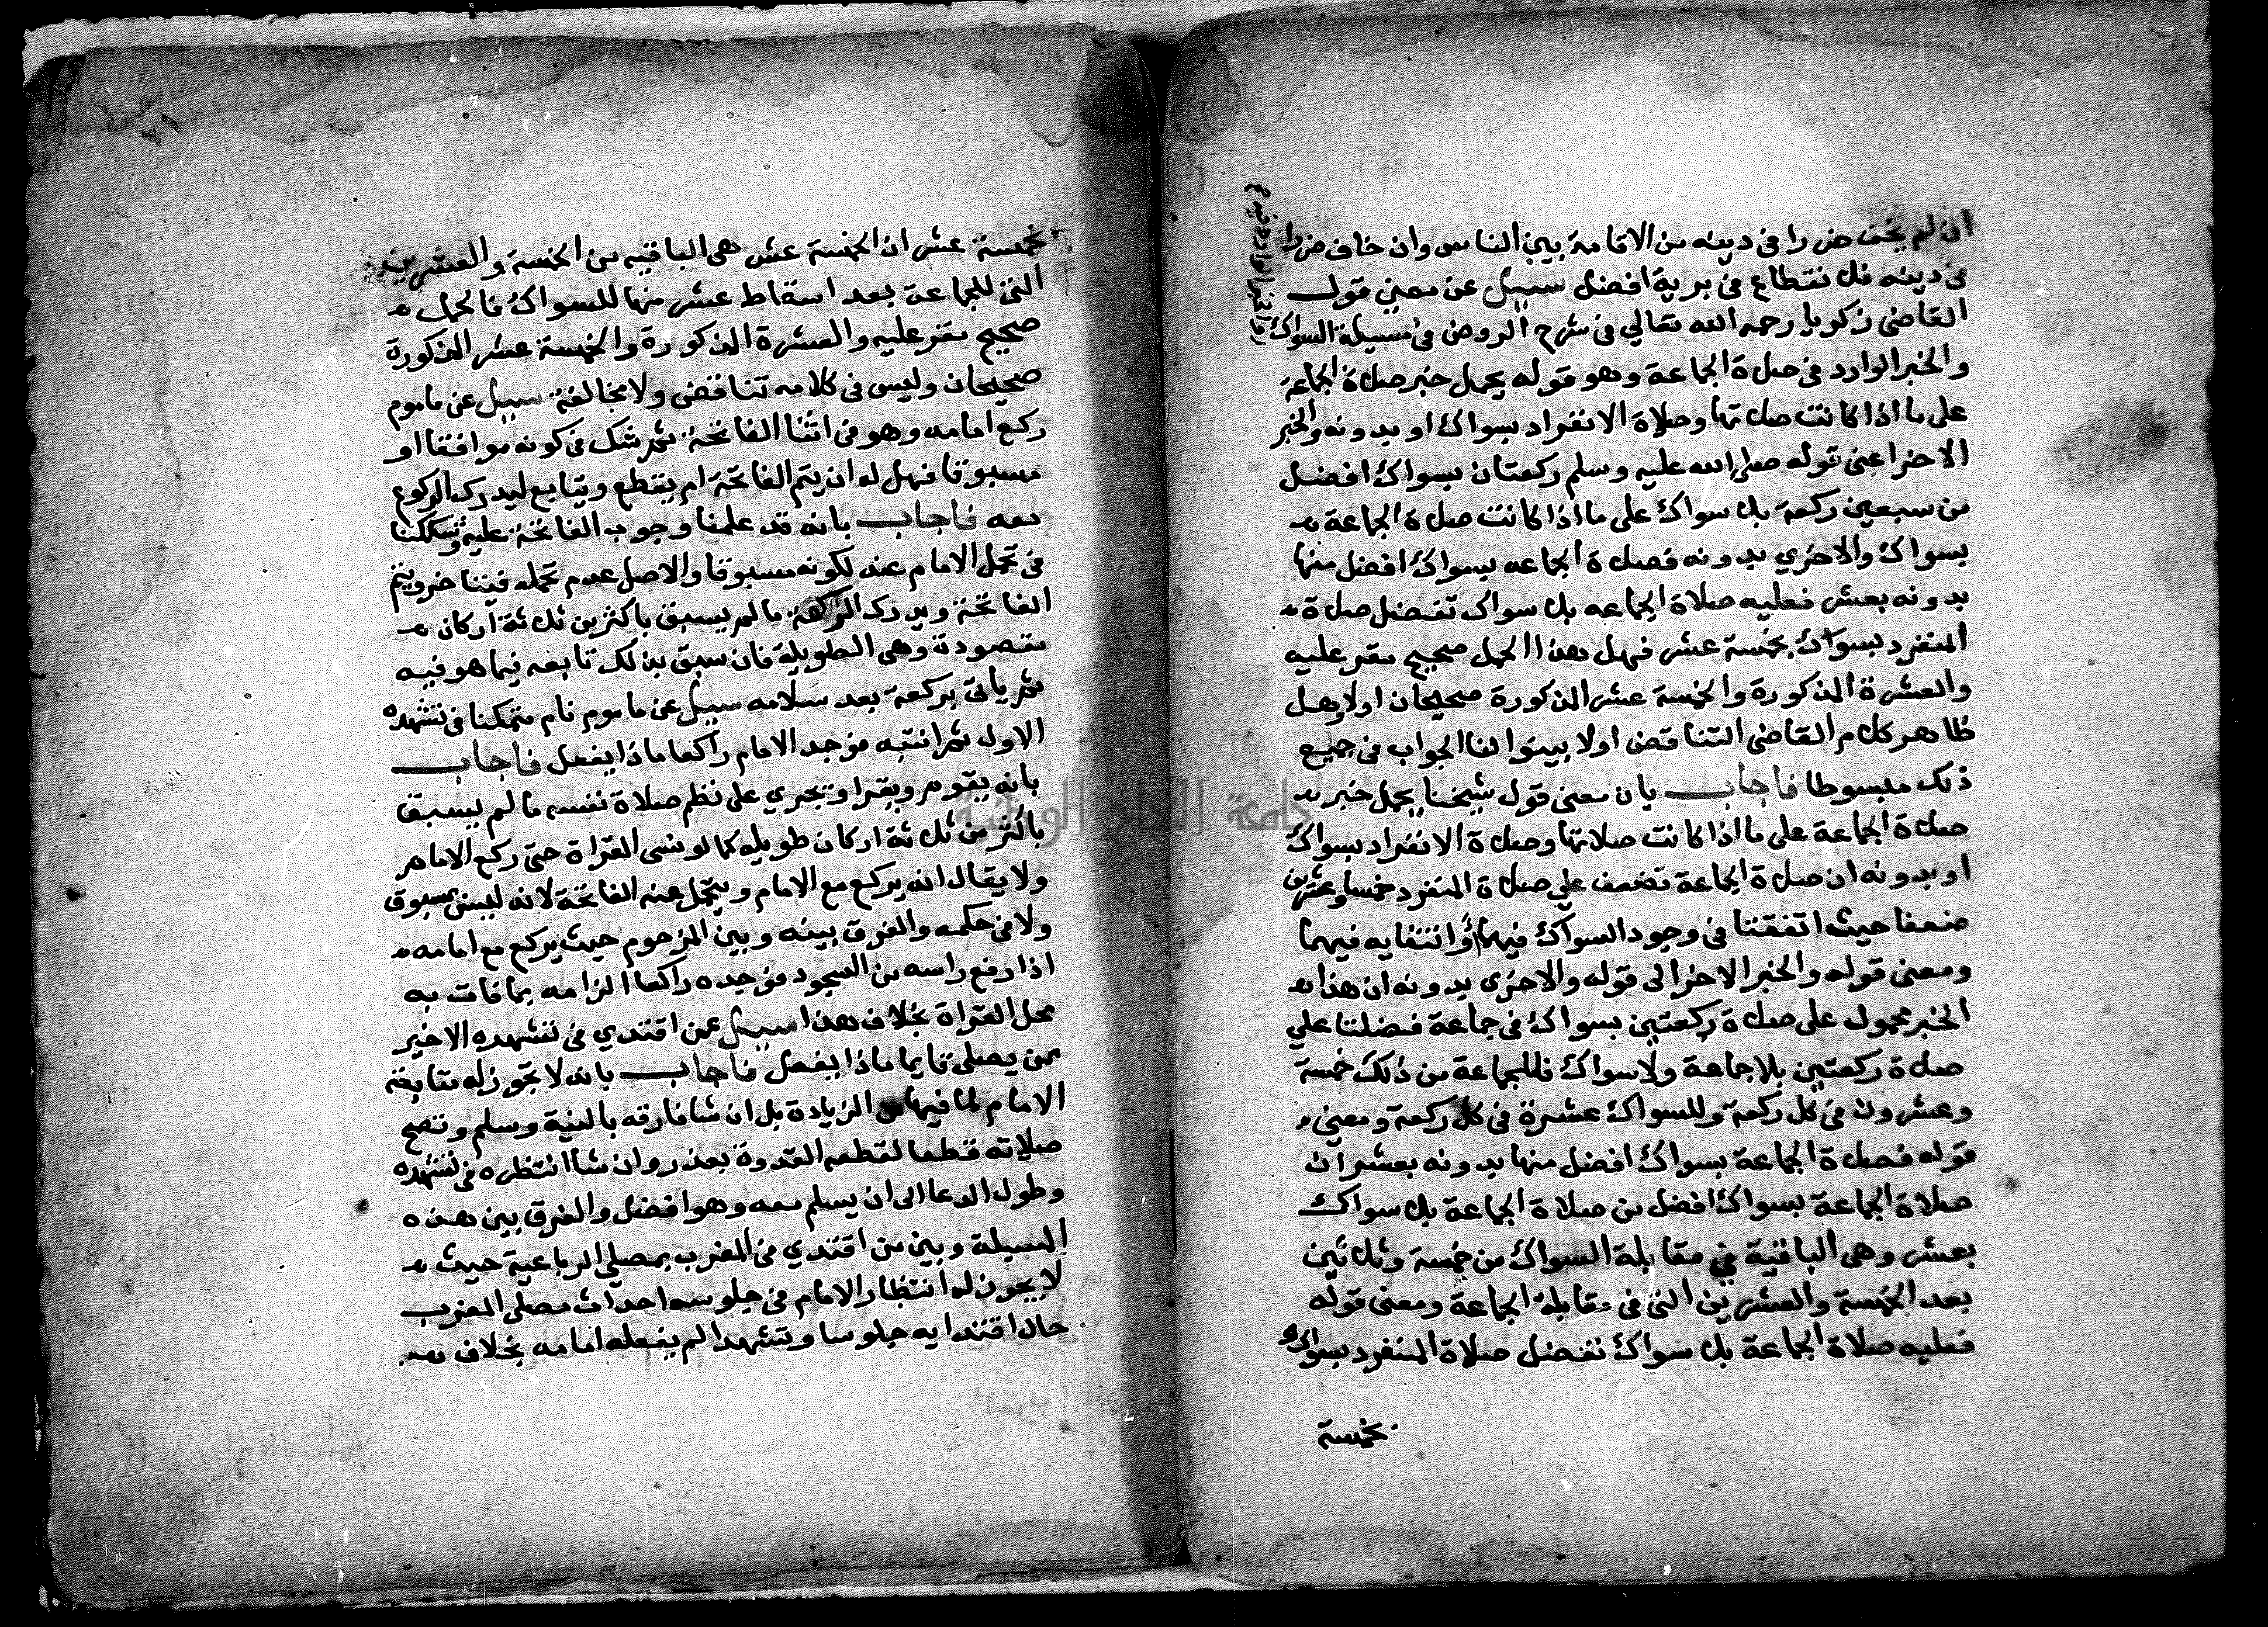 ان لم يخف ضررا في دينه من الاقامة بين الناس وان خاف ضررا
في دينه فالانقطاع في برية افضل سيل عن معنى قول
القاضي زكريا رحمه الله تعالي في شرح الروض في مسيلة السواك
والخبر الوارد في صلاة الجماعة وهو قوله يحمل خبر صلاة الجماعة
على ما اذا كانت صلاتها وصلاة الانفراد بسواك او بدونه والخبر
الاخر اعني قوله صلى الله عليه وسلم ركعتان بسواك افضل
من سبعين ركعة بلا سواك على ما اذا كانت صلاة الجماعة
بسواك والاخري بدونه فصلاة الجماعه بسواك افضل منها
بدونه بعشر فعليه صلاة الجماعه بلا سواك تفضل صلاة
المنفرد بسواك بخمسة عشر فهل هذا الحمل صحيح مقر عليه
والعشرة المذكورة والخمسة عشر المذكورة صحيحان اولا وهل
ظاهر كلام القاضي التناقض اولا بينوا لنا الجواب في جميع
ذلك مبسوطا فاجاب بان معنى قول شيخنا يحمل خبر
صلاة الجماعة على ما اذا كانت صلاتها وصلاة الانفراد بسواك
او بدونه ان صلاة الجماعة تضعف علي صلاة المنفرد خمسا وعشرين
ضعفا حيث اتفقتا في وجود السواك فيهما او انتفايه فيهما
ومعنى قوله والخبر الاخر الى قوله والاخرى بدونه ان هذا
الخبر محمول على صلاة ركعتين بسواك في جماعة فضلتا علي
صلاة ركعتين بلا جماعة ولا سواك فللجماعة من ذلك خمسة
وعشرون في كل ركعة وللسواك عشرة في كل ركعة ومعنى
قوله فصلاة الجماعة بسواك افضل منها بدونه بعشر ان
صلاة الجماعة بسواك افضل من صلاة الجماعة بلا سواك
بعشر وهي الباقية في مقابلة السواك من خمسة وثلاثين
بعد الخمسة والعشرين التي في مقابلة الجماعة ومعنى قوله
فعليه صلاة الجماعة بلا سواك تفضل صلاة المنفرد بسواك
بخمسة
بخمسة عشر ان الخمسة عشر هي الباقيه من الخمسة والعشرين
التي للجماعة بعد اسقاط عشر منها للسواك فالحمل
صحيح مقر عليه والعشرة المذكورة والخمسة عشر المذكورة
صحيحان وليس في كلامه تناقض ولا مخالفة سيل عن ماموم
ركع امامه وهو في اثنا الفاتحة ثم شك في كونه موافقا او
مسبوقا فهل له ان يتم الفاتحة ام يقطع ويتابع ليدرك الركوع
معه فاجاب بانه قد علمنا وجوب الفاتحة عليه وشككنا
في تحمل الامام عنه لكونه مسبوقا والاصل عدم تحمله فيتاخر ويتم
الفاتحة ويدرك الركعة ما لم يسبق باكثر من ثلاثة اركان
مقصودة وهي الطويلة فان سبق بذلك تابعه فيما هو فيه
ثم ياتي بركعة بعد سلامه سيل عن ماموم نام متمكنا في تشهده
الاول ثم انتبه فوجد الامام راكعا ماذا يفعل فاجاب
بانه يقوم ويقرا ويجري على نظم صلاة نفسه ما لم يسبق
باكثر من ثلاثة اركان طويله كما لو نسى القراة حتى ركع الامام
ولا يقال انه يركع مع الامام ويتحمل عنه الفاتحة لانه ليس بمسبوق
ولا في حكمه والفرق بينه وبين المزحوم حيث يركع مع امامه
اذا رفع راسه من السجود فوجده راكعا الزامه بما فات به
محل القراة بخلاف هذا سيل عمن اقتدي في تشهده الاخير
بمن يصلى قايما ماذا يفعل فاجاب بانه لا تجوز له متابعة
الامام لما فيها من الزيادة بل ان شا فارقه بالنية وسلم وتصح
صلاته قطعا لقطعه القدوة بعذر وان شا انتظره في تشهده
وطول الدعا الى ان يسلم معه وهو افضل والفرق بين هذه
المسيلة وبين من اقتدي في المغرب بمصلي الرباعية حيث
لا يجوز له انتظار الامام في جلوسه احداث مصلى المغرب
حال اقتدايه جلوسا وتشهدا لم يفعله امامه بخلاف
جامعة النجاح الوطنية